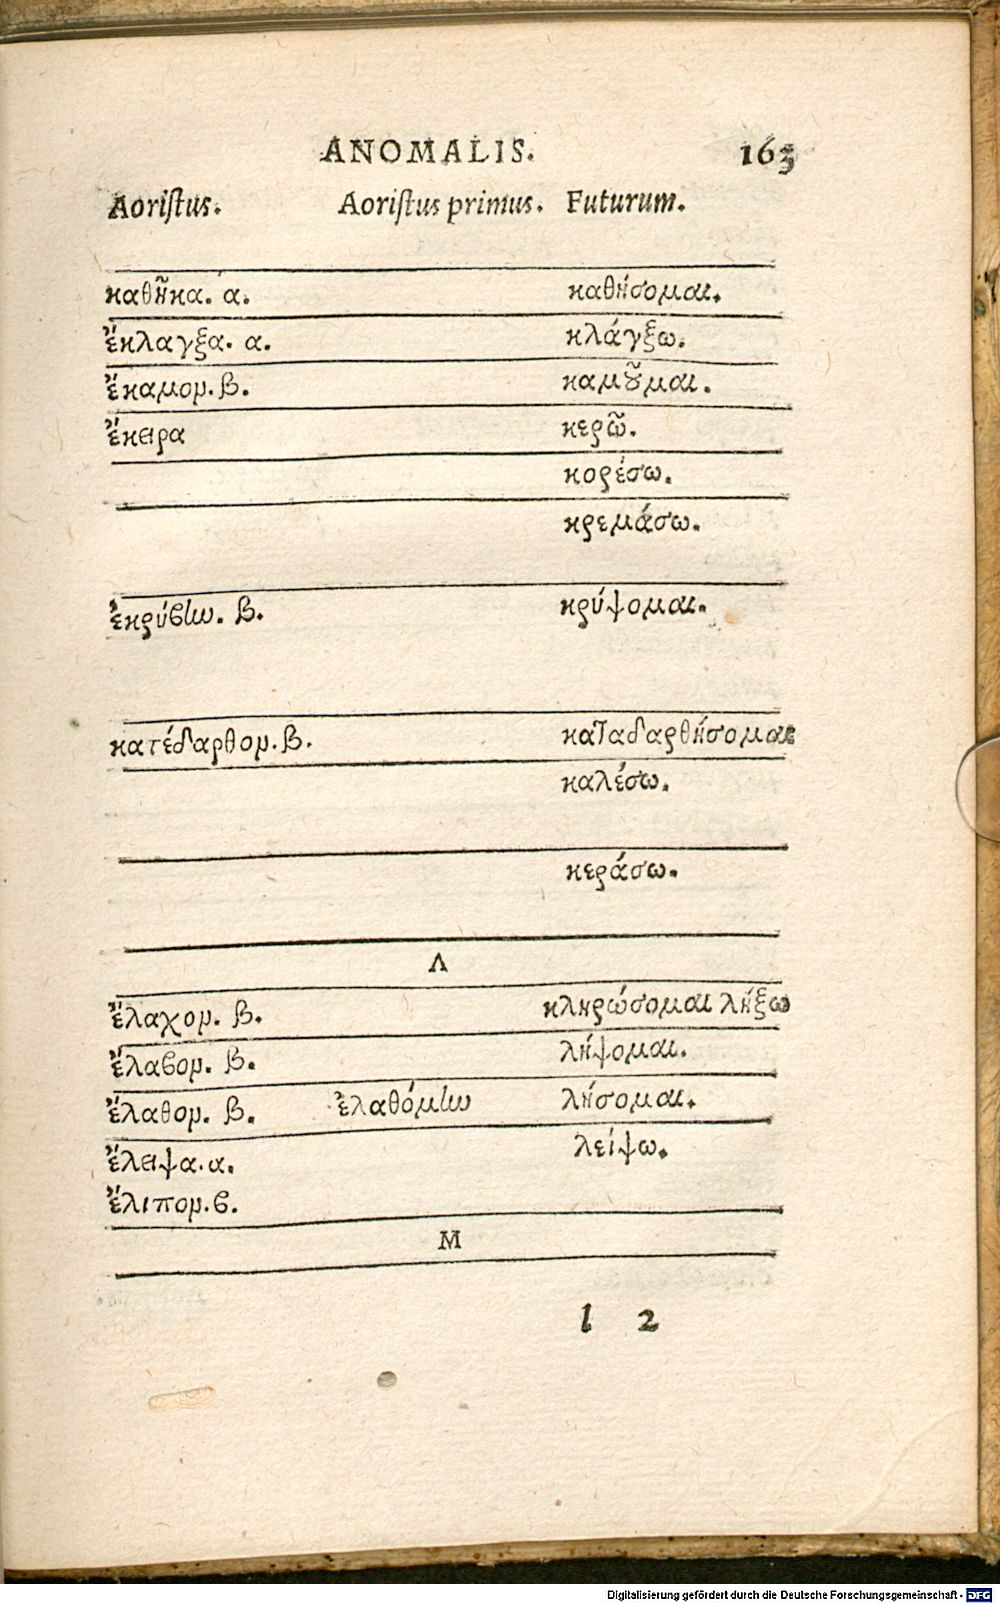 ANOMALIS. 163
Aoristus. Aoristus primus. Futurum.
καθῆκα. ά. καθήσομαι.
ἔκλαγξα. α. κλάγξω.
ἔκαμον. β. καμοῦμαι.
ἔκειρα κερῶ.
κορέσω.
κρεμάσω.
ἐκρύβην. β. κρύψομαι.
κατέδαρθον. β. καταδαρθήσομαι
καλέσω.
κεράσω.
Λ
ἔλαχον. β. κληρώσομαι λήξω
ἔλαβον. β. λήψομαι.
ἔλαθον. β. ἐλαθόμην λήσομαι.
ἔλειψα. α. λείψω.
ἔλιπον. β.
Μ
l 2
Digitalisierung gefördert durch die Deutsche Forschungsgemeinschaft - DFG